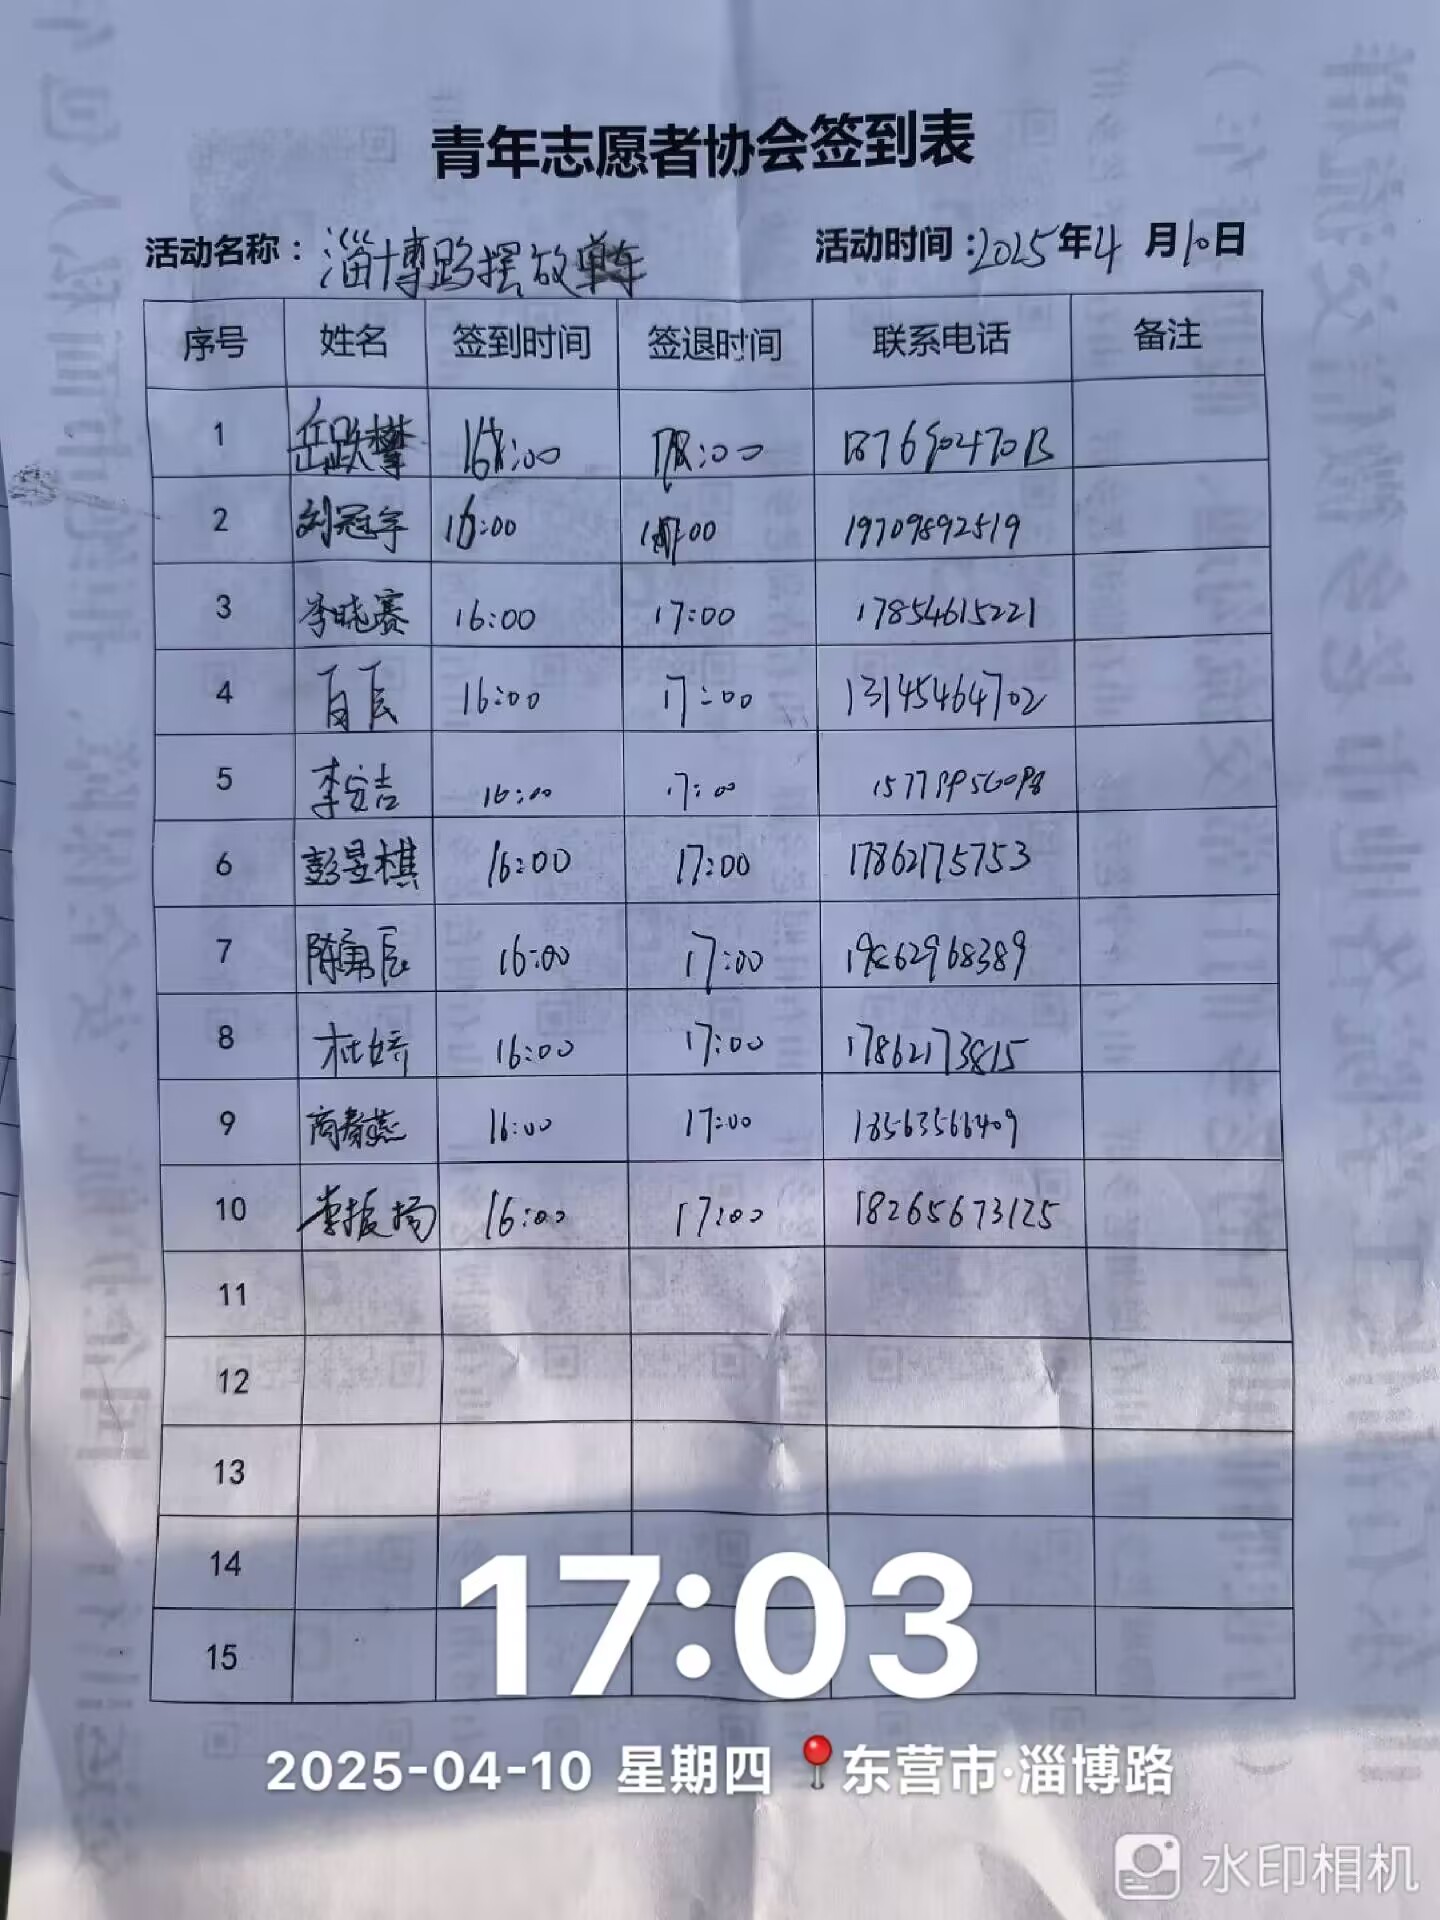 青年志愿者协会签到表
活动名称：淄博路摆放单车 活动时间：2025年4月10日
序号 姓名 签到时间 签退时间 联系电话 备注
1 岳跃攀 16:00 :00
2 刘冠宇 16:00 :00 19709892519
3 李晓赛 16:00 17:00 17854615221
4 16:00 17:00 13145464702
5 李安吉 16:00 17:00
6 彭昱棋 16:00 17:00 17862175753
7 16:00 17:00
8 杜娇 16:00 17:00 17862173815
9 商春燕 16:00 17:00 18563566409
10 李振扬 16:00 17:00 18265673125
11
12
13
14
15
17:03
2025-04-10 星期四 📍东营市·淄博路
水印相机